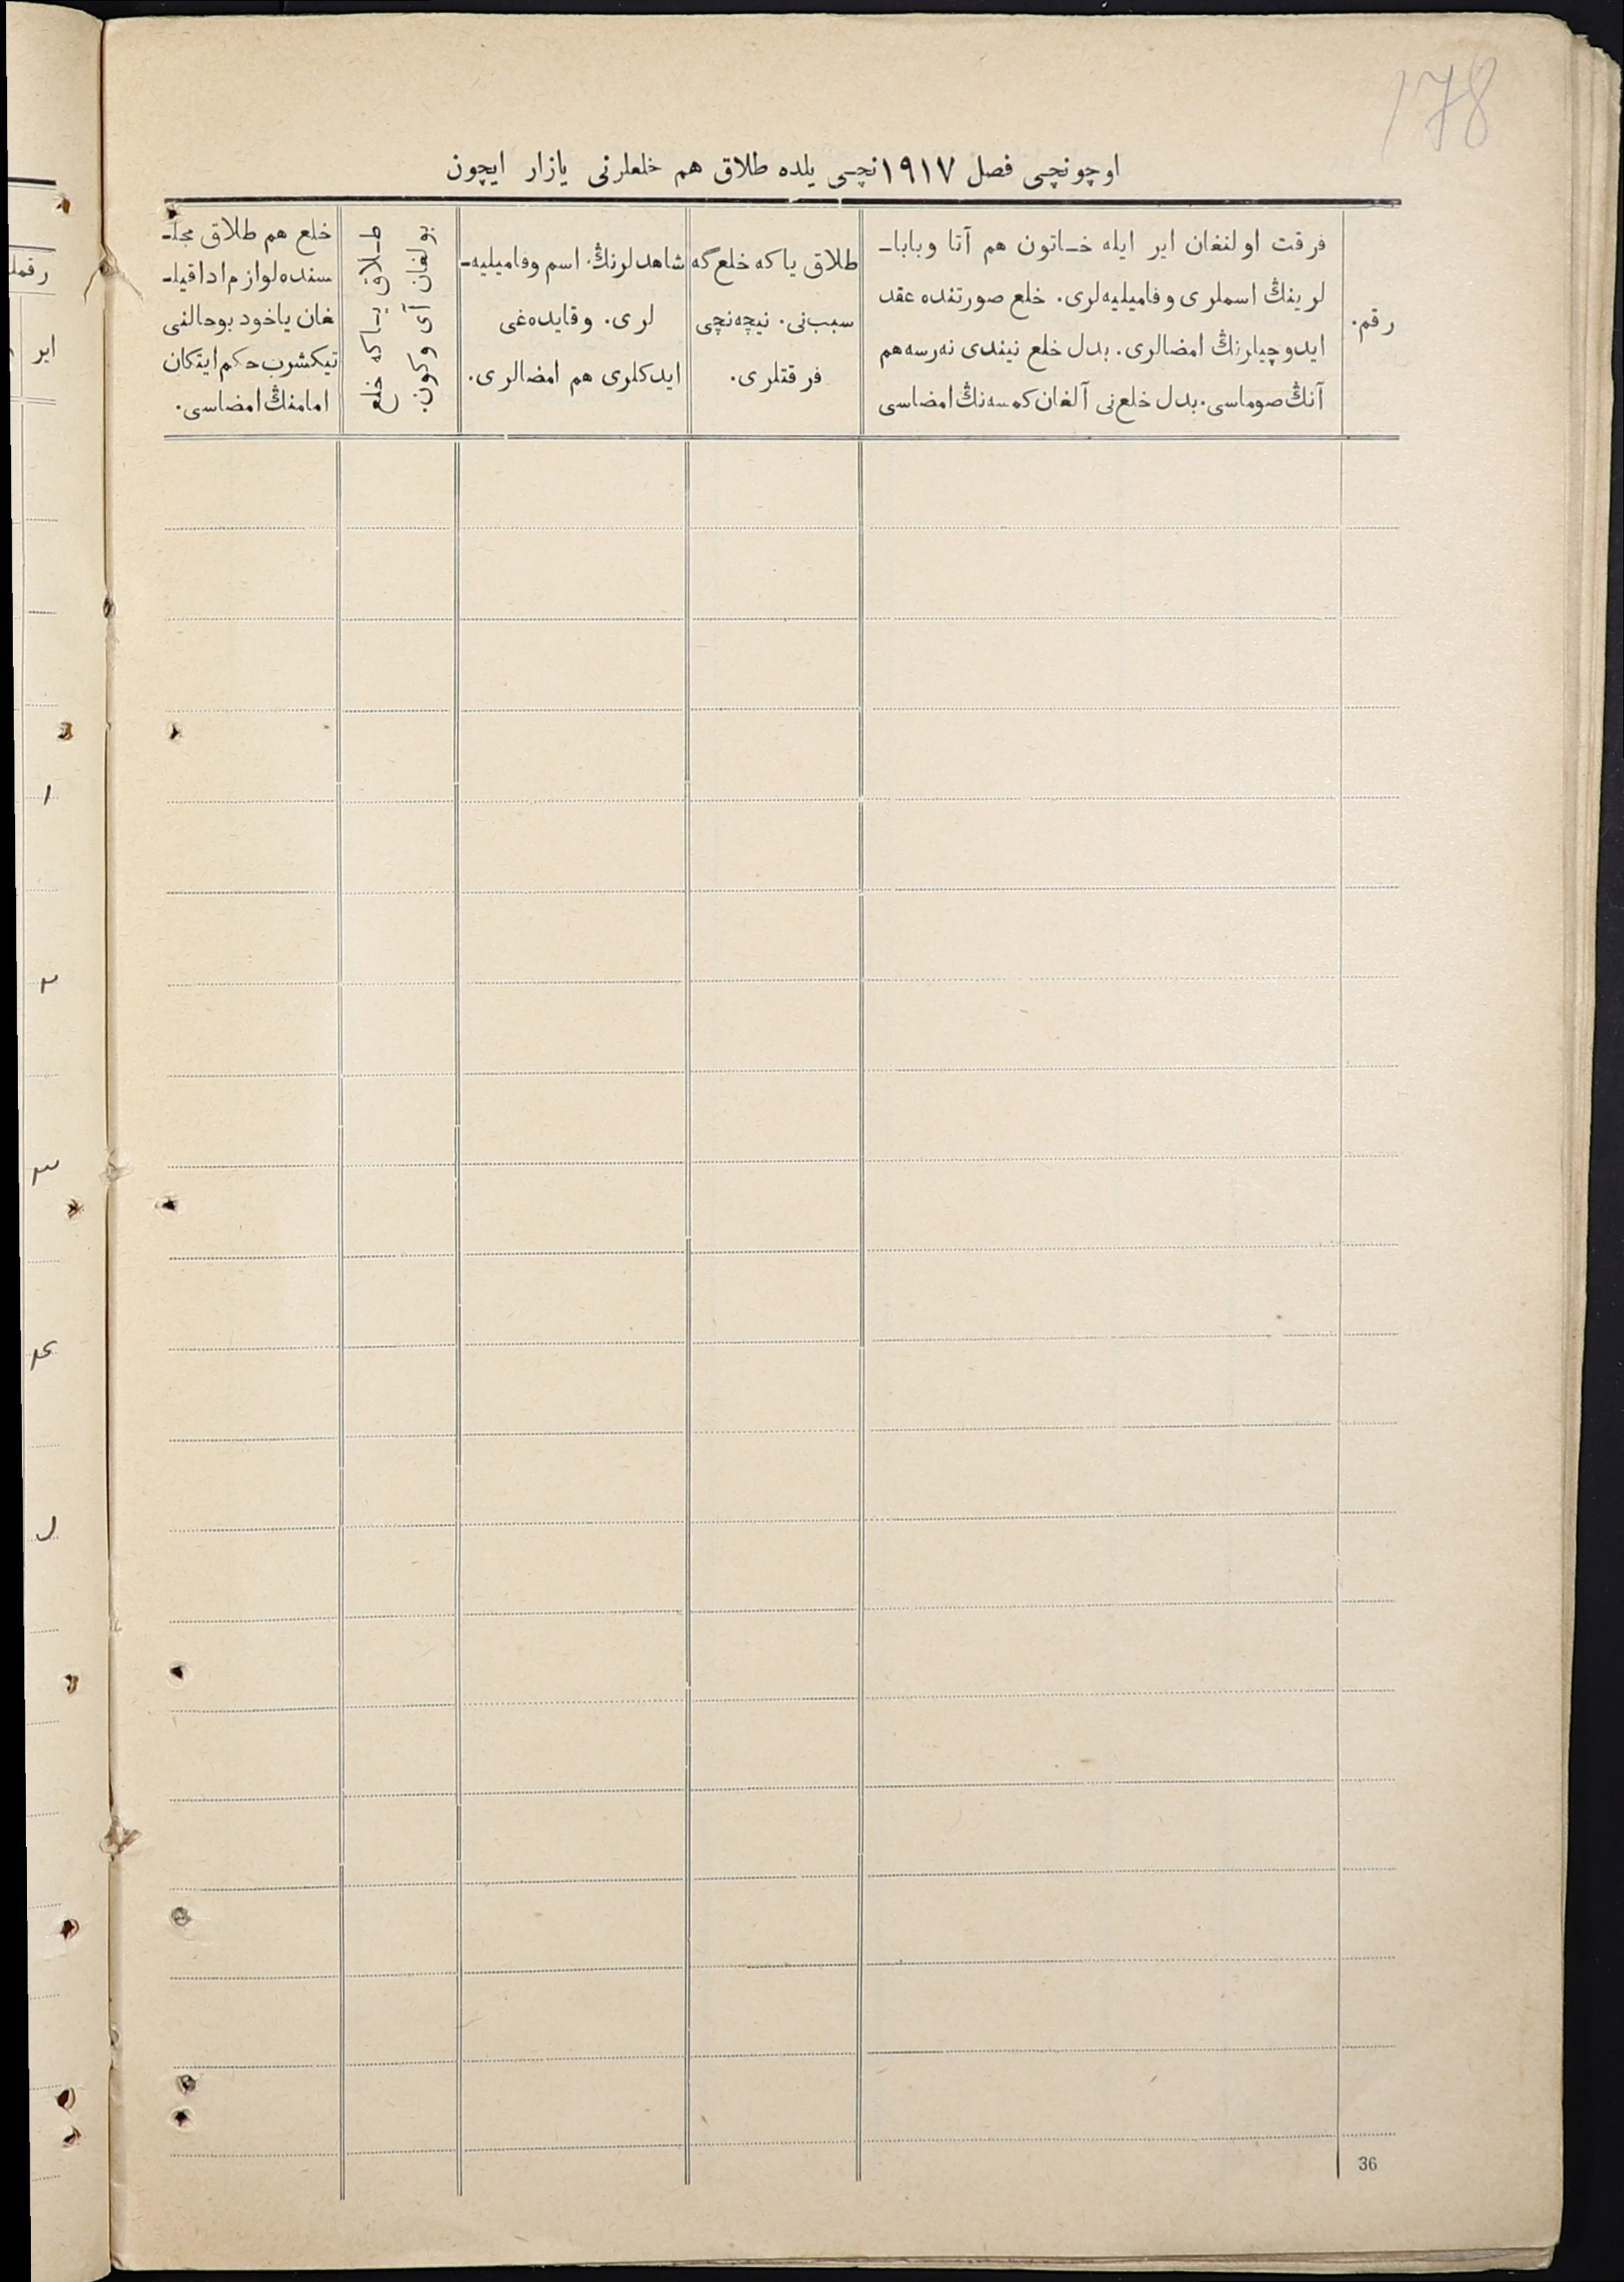 178
اوچونچی فصل ١٩١٧نچی یلده طلاق هم خلعلرنی یازار ایچون
رقم.
فرقت اولنغان ایر ایله خـاتون هم آتا وباباـ
لرینڭ اسملری وفامیلیه‌لری. خلع صورتنده عقد
ایدوچیلرنڭ امضالری. بدل خلع نیندی نه‌رسه هم
آنڭ صوماسی. بدل خلع‌نی آلغان کمسه‌نڭ امضاسی
طلاق یا که خلع گه
سبب‌نی. نیچه‌نچی
فرقتلری.
شاهدلرنڭ اسم وفامیلیه‌ـ
لری. وقایده‌غی
ایدکلری هم امضالری.
طـلاق یـا که خلع
بولغان آی وکون.
خلع هم طلاق مجلـ
سنده لوازم ادا قیلـ
غان یاخود بوحالنی
تیکشرب حکم ایتکان
امامنڭ امضاسی.
رقملر
ایر
١
٢
٣
٤
36